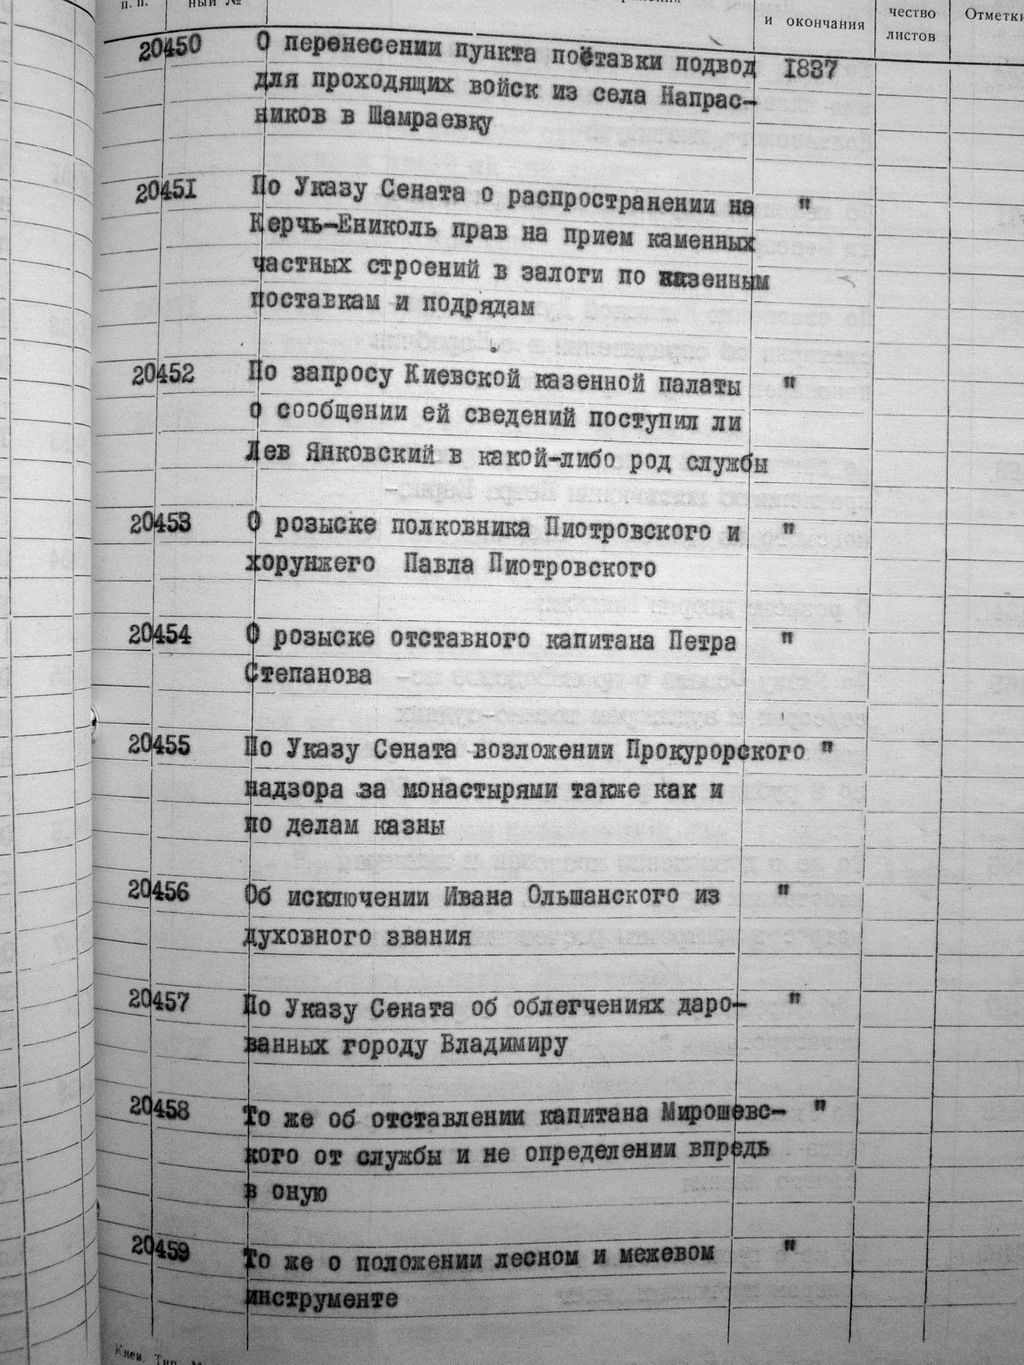 п. п.
ный №
и окончания
чество
листов
Отметки
20450 О перенесении пункта поставки подвод 1837
для проходящих войск из села Напрас-
ников в Шамраевку
20451 По Указу Сената о распространении на "
Керчь-Ениколь прав на прием каменных
частных строений в залоги по казенным
поставкам и подрядам
20452 По запросу Киевской казенной палаты "
о сообщении ей сведений поступил ли
Лев Янковский в какой-либо род службы
20453 О розыске полковника Пиотровского и "
хорунжего Павла Пиотровского
20454 О розыске отставного капитана Петра "
Степанова
20455 По Указу Сената возложении Прокурорского "
надзора за монастырями также как и
по делам казны
20456 Об исключении Ивана Ольшанского из "
духовного звания
20457 По Указу Сената об облегчениях даро- "
ванных городу Владимиру
20458 То же об отставлении капитана Мирошевс- "
кого от службы и не определении впредь
в оную
20459 То же о положении лесном и межевом "
инструменте
Киев. Тип.